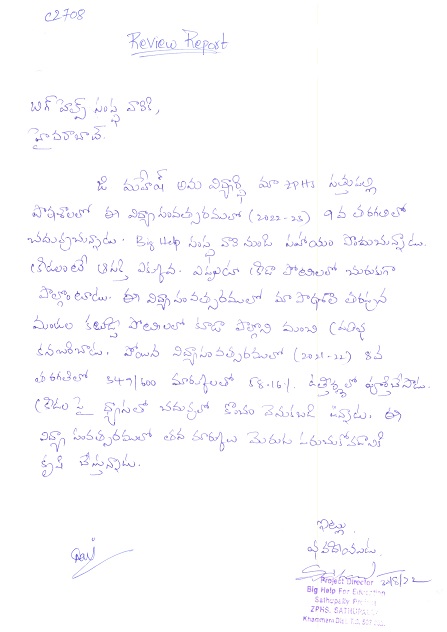 C2708
Review Report
బిగ్ హెల్ప్ సంస్థ వారికి,
హైదరాబాద్.
జి మహేష్ అను విద్యార్థి మా ZPHS సత్తుపల్లి
పాఠశాలలో ఈ విద్యాసంవత్సరములో (2022-23) 9వ తరగతిలో
చదువుచున్నాడు. Big Help సంస్థ వారి నుండి సహాయం పొందుచున్నాడు.
క్రీడలంటే ఆసక్తి ఎక్కువ. ఎప్పుడూ క్రీడా పోటీలలో చురుకుగా
పాల్గొంటాడు. ఈ విద్యాసంవత్సరములో మా పాఠశాల తరఫున
మండల కబడ్డీ పోటీలలో కూడా పాల్గొని మంచి ప్రతిభ
కనబరిచాడు. పోయిన విద్యాసంవత్సరములో (2021-22) 8వ
తరగతిలో 349/600 మార్కులలో 58.16% ఉత్తీర్ణతో పూర్తిచేసాడు.
క్రీడల పై ధ్యాసతో చదువులో కొంచం వెనుకబడి ఉన్నాడు. ఈ
విద్యా సంవత్సరములో తన మార్కులు మెరుగు పరుచుకోవడానికి
కృషి చేస్తున్నాడు.
ఇట్లు,
Project Director
Big Help For Education
Sathupally
ZPHS, SATHUPALLY
Khammam Dist.